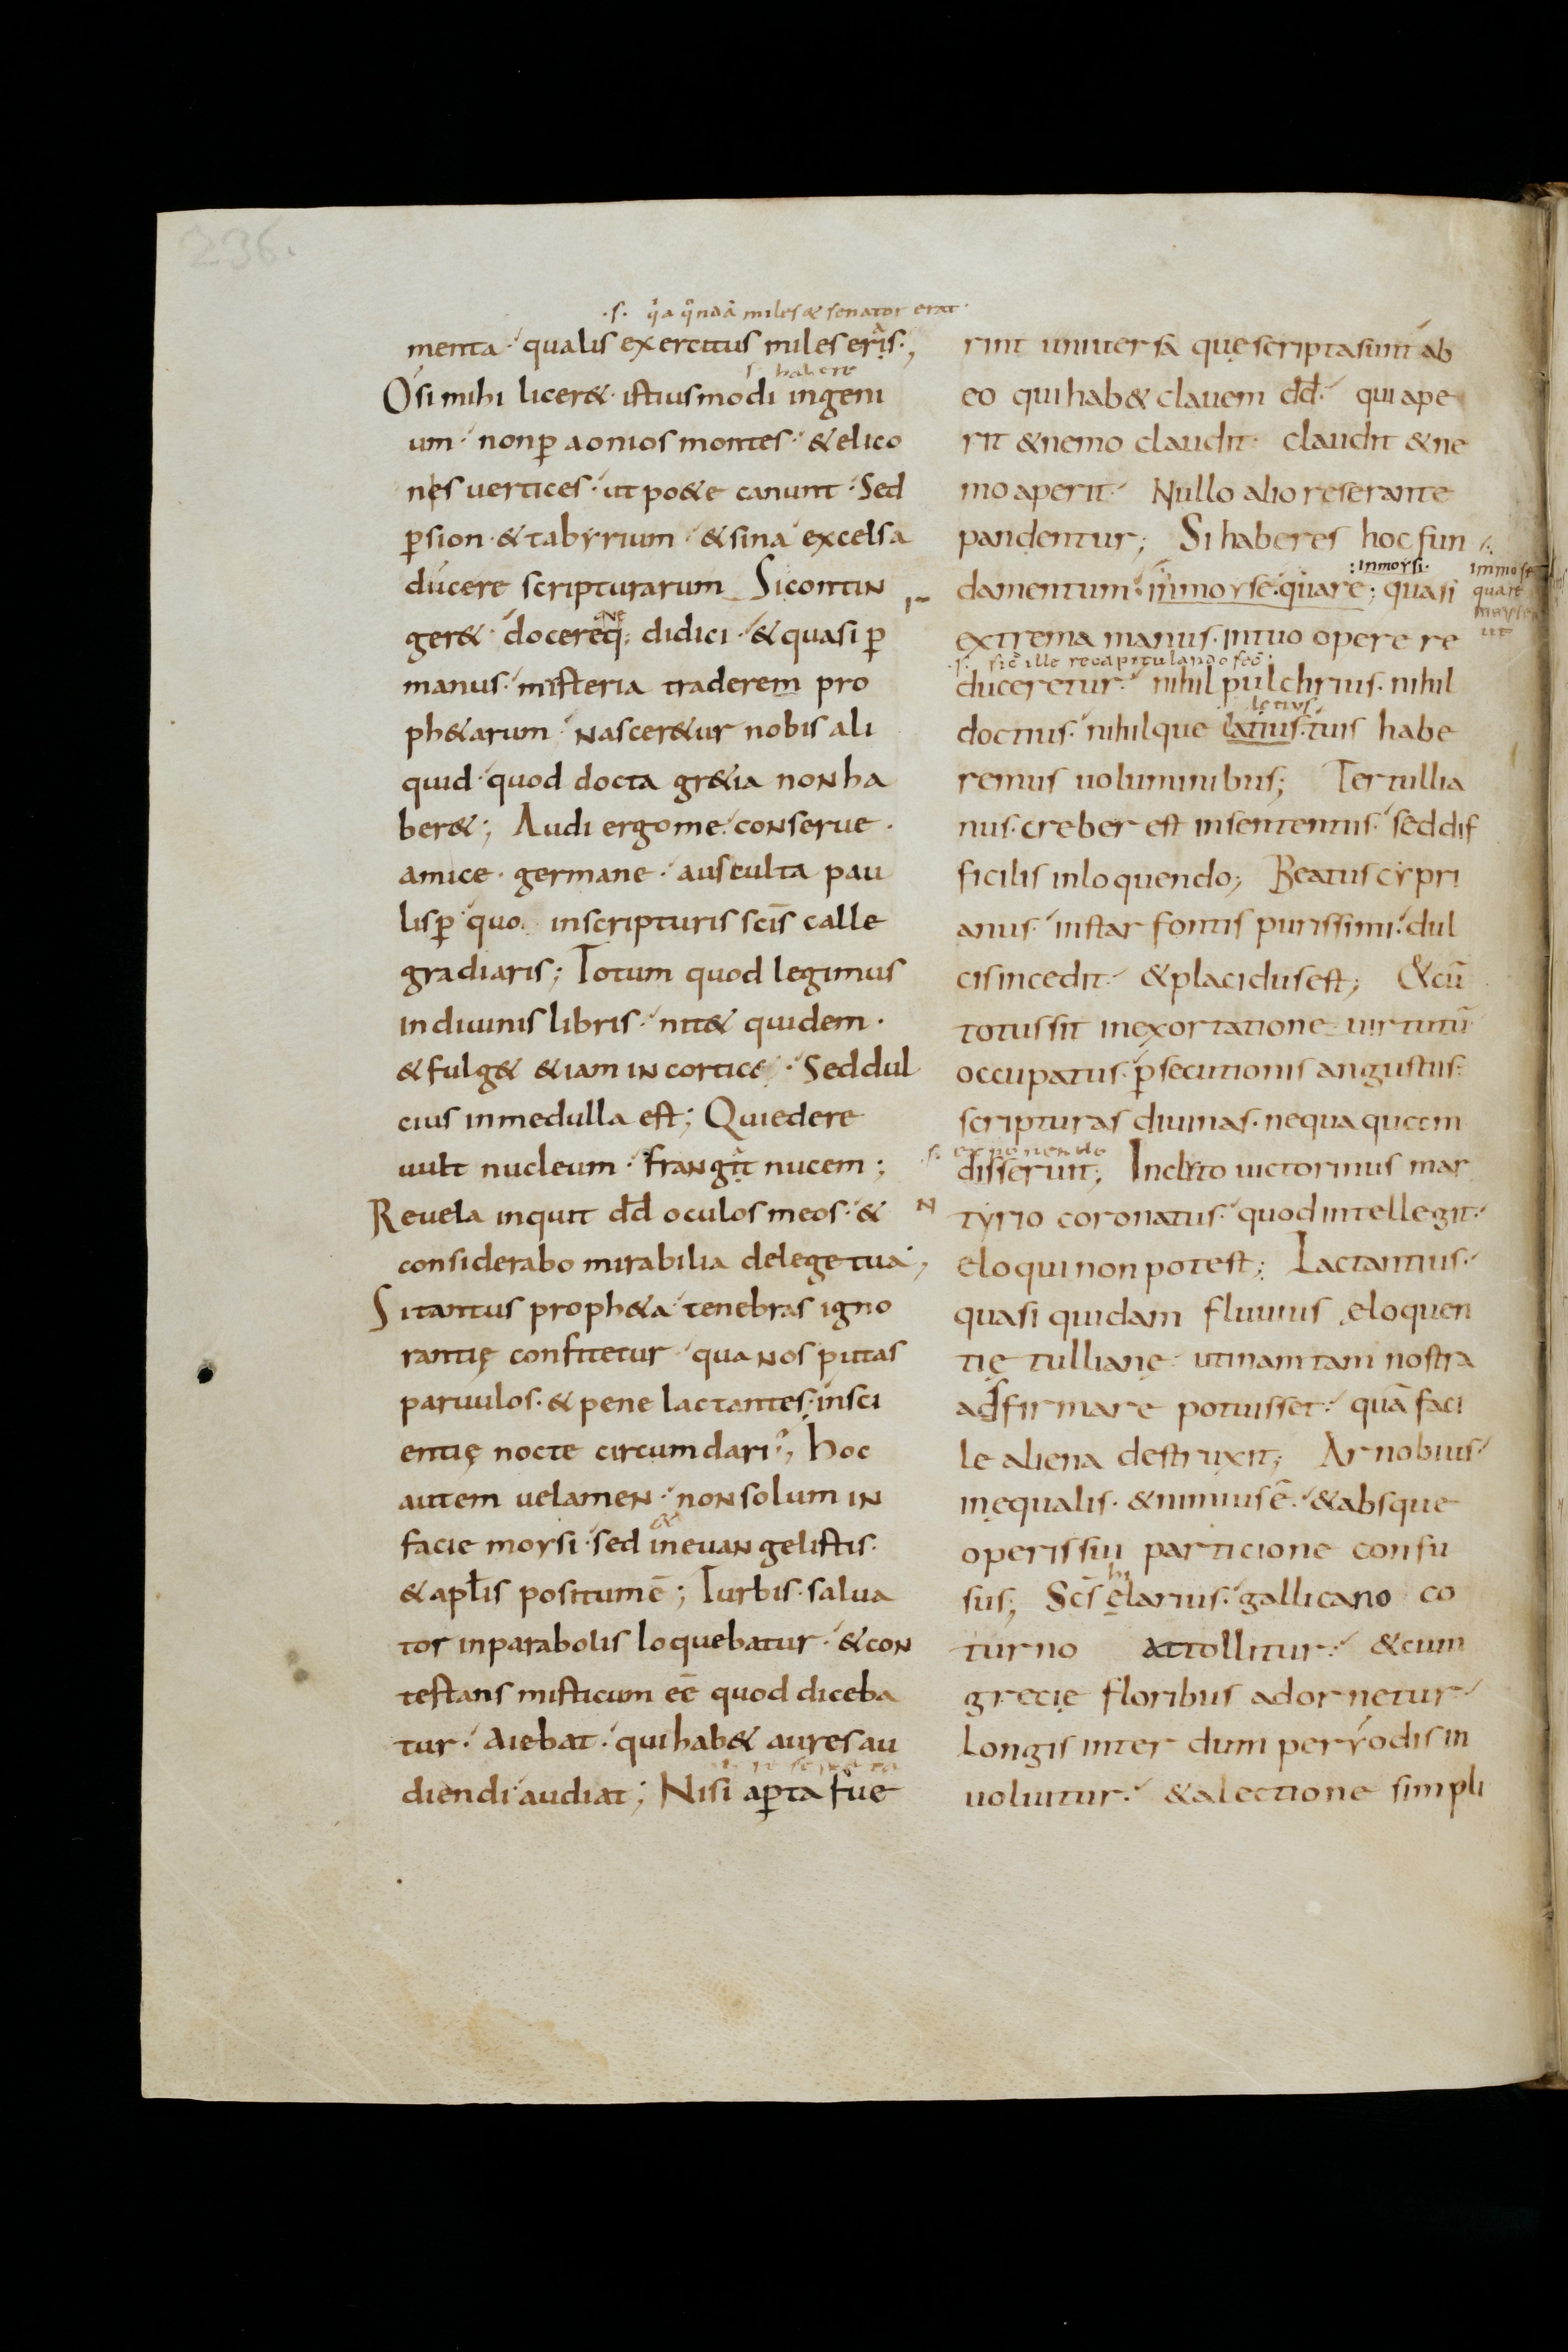 236.
.s. q̊a q̊ndā miles & senator erat.
menta· qualis exercitus miles eris·;
s. habere
O si mihi licer& · istiusmodi ingeni
um· non ꝑ aonios montes· & elico
nes uertices· ut po&e canunt· Sed
ꝑ sion· & tabyrium· & sina excelsa
ducere scripturarum Si contin
ger& docereq; didici· & quasi ꝑ
manus· misteria traderem pro
ph&arum· nascer&ur nobis ali
quid· quod docta gr&ia non ha
ber&; Audi ergo me· conserue·
amice· germane· ausculta pau
lisꝑ quo in scripturis scīs calle
gradiaris; Totum quod legimus
in diuinis libris· nit& quidem·
& fulg& &iam in cortice· Sed dul
cius in medulla est; Qui edere
uult nucleum· frangit nucem;
Reuela inquit dd̄ oculos meos· &
considerabo mirabilia de lege tua;
Si tantus proph&a· tenebras igno
rantię confitetur qua nos putas
paruulos· & pene lactantes· insci
entię nocte circumdari; hoc
autem uelamen· non solum in
&
facie moysi· sed in euangelistis·
& apłis positum ē; Turbis· salua
tor in parabolis loquebatur· & con
testans misticum eē quod diceba
tur· Aiebat· qui hab& aures au
diendi audiat; Nisi aꝑta fue
rint uniuersa quę scripta sunt ab
eo qui hab& clauem dd̄· qui ape
rit & nemo claudit· claudit & ne
mo aperit· Nullo alio reserante
pandentur; Si haberes hoc fun
:inmorsi·
damentum· immo rse· quare; quasi
extrema manus· in tuo opere re
.s. sic̄ ille recapitulando fec̄
duceretur· nihil pulchrius· nihil
letius
doctius· nihilque latius· tuis habe
remus uoluminibus; Tertullia
nus· creber est in sententiis· sed dif
ficilis in loquendo; Beatus cypri
anus· instar fontis purissimi· dul
cis incedit· & placidus est; & cū
totus sit in exortatione uirtutū
occupatus· ꝑsecutionis angustiis·
scripturas diuinas· nequaquam
.s. exponendo
disseruit; Inclyto uictorinus mar
tyrio coronatus· quod intellegit·
eloqui non potest; Lactantius·
quasi quidam fluuius eloquen
tię tullianę· utinam tam nostra
adfirmare potuisset· quā faci
le aliena destruxit; Arnobius·
inequalis· & nimius ē· & absque
operis sui particione confu
hi
sus; Scs̄ elarius· gallicano co
turno attollitur· & cum
grecię floribus adornetur·
longis interdum peryodis in
uoluitur· & a lectione simpli